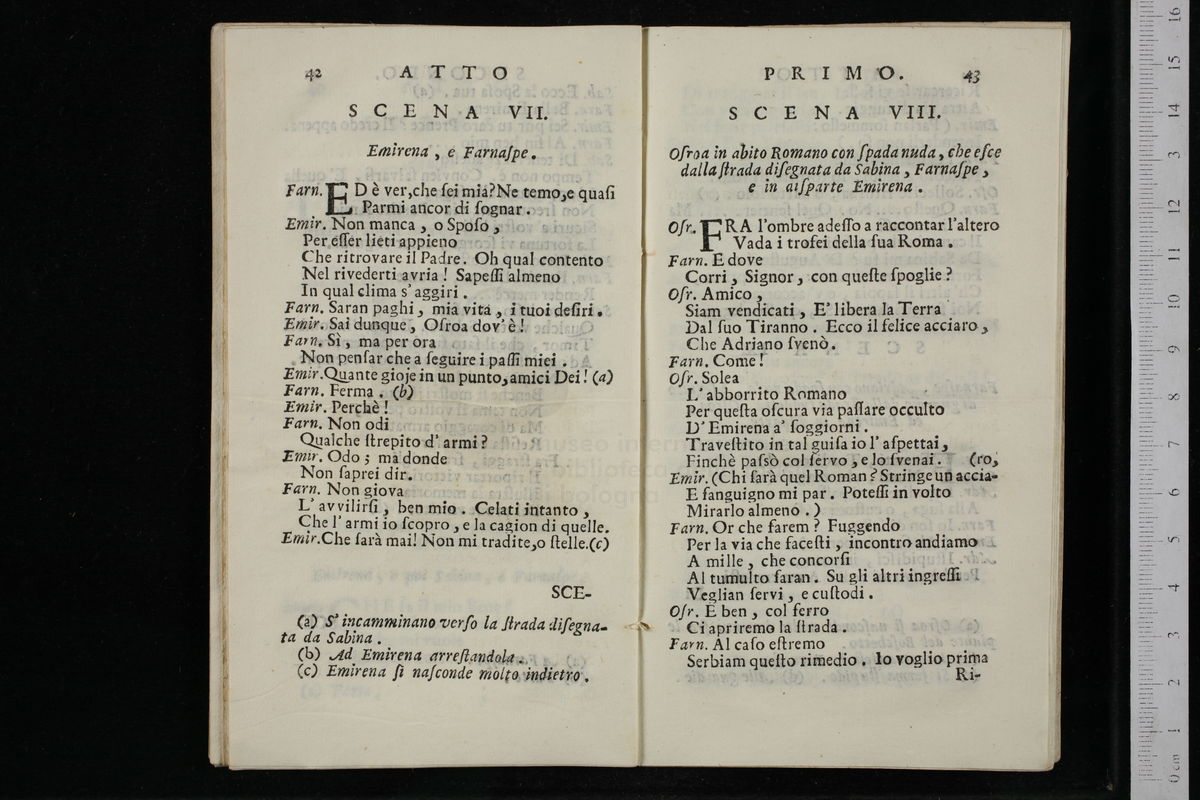 42 ATTO
SCENA VII.
Emirena, e Farnaſpe.
Farn. ED è ver, che ſei mia? Ne temo, e quaſi
Parmi ancor di ſognar.
Emir. Non manca, o Spoſo,
Per eſſer lieti appieno
Che ritrovare il Padre. Oh qual contento
Nel rivederti avria! Sapeſſi almeno
In qual clima s'aggiri.
Farn. Saran paghi, mia vita, i tuoi deſiri.
Emir. Sai dunque, Oſroa dov'è!
Farn. Sì, ma per ora
Non penſar che a ſeguire i paſſi miei.
Emir. Quante gioje in un punto, amici Dei! (a)
Farn. Ferma. (b)
Emir. Perchè!
Farn. Non odi
Qualche ſtrepito d'armi?
Emir. Odo; ma donde
Non ſaprei dir.
Farn. Non giova
L'avvilirſi, ben mio. Celati intanto,
Che l'armi io ſcopro, e la cagion di quelle.
Emir. Che ſarà mai! Non mi tradite, o ſtelle. (c)
SCE-
(a) S'incamminano verſo la ſtrada diſegna-
ta da Sabina.
(b) Ad Emirena arreſtandola.
(c) Emirena ſi naſconde molto indietro.
PRIMO. 43
SCENA VIII.
Oſroa in abito Romano con ſpada nuda, che eſce
dalla ſtrada diſegnata da Sabina, Farnaſpe,
e in diſparte Emirena.
Oſr. FRA l'ombre adeſſo a raccontar l'altero
Vada i trofei della ſua Roma.
Farn. E dove
Corri, Signor, con queſte ſpoglie?
Oſr. Amico,
Siam vendicati, E' libera la Terra
Dal ſuo Tiranno. Ecco il felice acciaro,
Che Adriano ſvenò.
Farn. Come!
Oſr. Solea
L'abborrito Romano
Per queſta oſcura via paſſare occulto
D'Emirena a' ſoggiorni.
Traveſtito in tal guiſa io l'aſpettai,
Finchè paſsò col ſervo, e lo ſvenai. (ro,
Emir. (Chi ſarà quel Roman? Stringe un accia-
E ſanguigno mi par. Poteſſi in volto
Mirarlo almeno.)
Farn. Or che farem? Fuggendo
Per la via che faceſti, incontro andiamo
A mille, che concorſi
Al tumulto ſaran. Su gli altri ingreſſi
Veglian ſervi, e cuſtodi.
Oſr. E ben, col ferro
Ci apriremo la ſtrada.
Farn. Al caſo eſtremo
Serbiam queſto rimedio. Io voglio prima
Ri-
museo inter
biblioteca
di bologna
0 cm 1 2 3 4 5 6 7 8 9 10 11 12 13 14 15 16